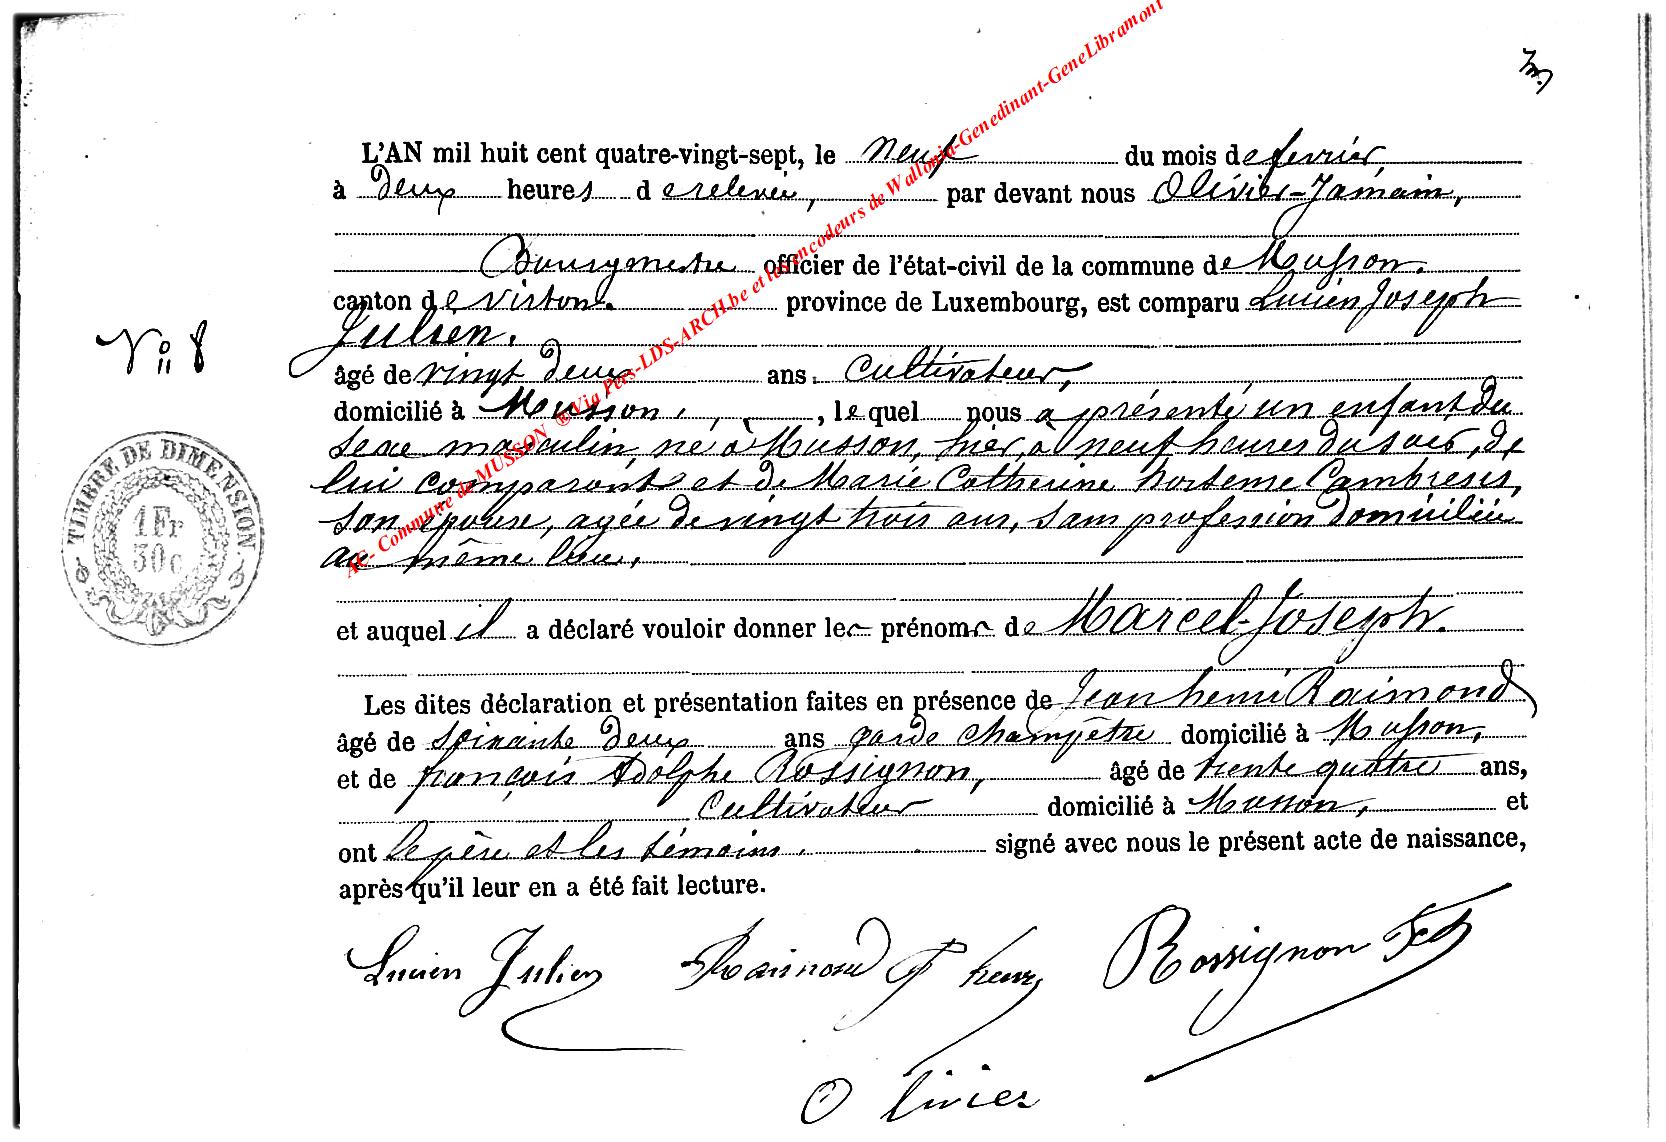 L'AN mil huit cent quatre-vingt-sept, le neuf du mois de fevrier
à deux heures de relevée, par devant nous Olivier-Jamain,
Bourgmestre officier de l'état-civil de la commune de Musson.
canton de Virton. province de Luxembourg, est comparu Lucien Joseph
Julien.
N° 8
âgé de vingt deux ans. Cultivateur,
domicilié à Musson, , lequel nous a présenté un enfant du
sexe masculin, né à Musson, hier, à neuf heures du soir, de
lui comparant et de Marie Catherine hortense Cambresis,
son épouse, agée de vingt trois ans, sans profession domiciliée
au même lieu,
et auquel il a déclaré vouloir donner les prénoms de Marcel-Joseph.
Les dites déclaration et présentation faites en présence de Jean henri Raimond
âgé de soixante deux ans garde champêtre domicilié à Musson,
et de françois Adolphe Rossignon, âgé de trente quatre ans,
Cultivateur domicilié à Musson, et
ont le père et les témoins. signé avec nous le présent acte de naissance,
après qu'il leur en a été fait lecture.
Lucien Julien Raimond J henri Rossignon
Olivier
TIMBRE DE DIMENSION
1 Fr
30 c
AE- Commune de MUSSON ® Via Pers-LDS-ARCH.be et les encodeurs de Wallonia-Genedinant-GeneLibramont